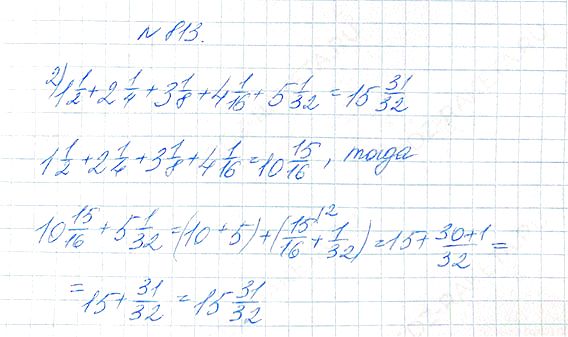 № 813.
2) 1 1/2 + 2 1/4 + 3 1/8 + 4 1/16 + 5 1/32 = 15 31/32
1 1/2 + 2 1/4 + 3 1/8 + 4 1/16 = 10 15/16, тогда
10 15/16 + 5 1/32 = (10 + 5) + (15/16 \2 + 1/32) = 15 + 30+1/32 =
= 15 + 31/32 = 15 31/32